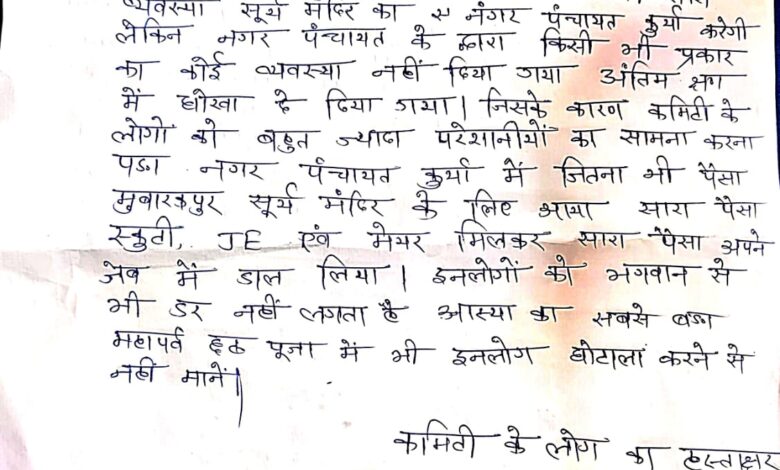 व्यवस्था सूर्य मंदिर का स नगर पंचायत कुर्था करेगी
लेकिन नगर पंचायत के द्वारा किसी भी प्रकार
का कोई व्यवस्था नहीं दिया गया अंतिम क्षण
में धोखा दे दिया गया। जिसके कारण कमिटी के
लोगो को बहुत ज्यादा परेशानीयों का सामना करना
पङा नगर पंचायत कुर्था में जितना भी पैसा
मुबारकपुर सूर्य मंदिर के लिए आया सारा पैसा
स्कुटी, JE एंव मेयर मिलकर सारा पैसा अपने
जेब में डाल लिया। इनलोगों को भगवान से
भी डर नहीं लगता है आस्था का सबसे बङा
महापर्व छठ पूजा में भी इनलोग घोटाला करने से
नहीं मानें।
कमिटी के लोग का हस्ताक्षर